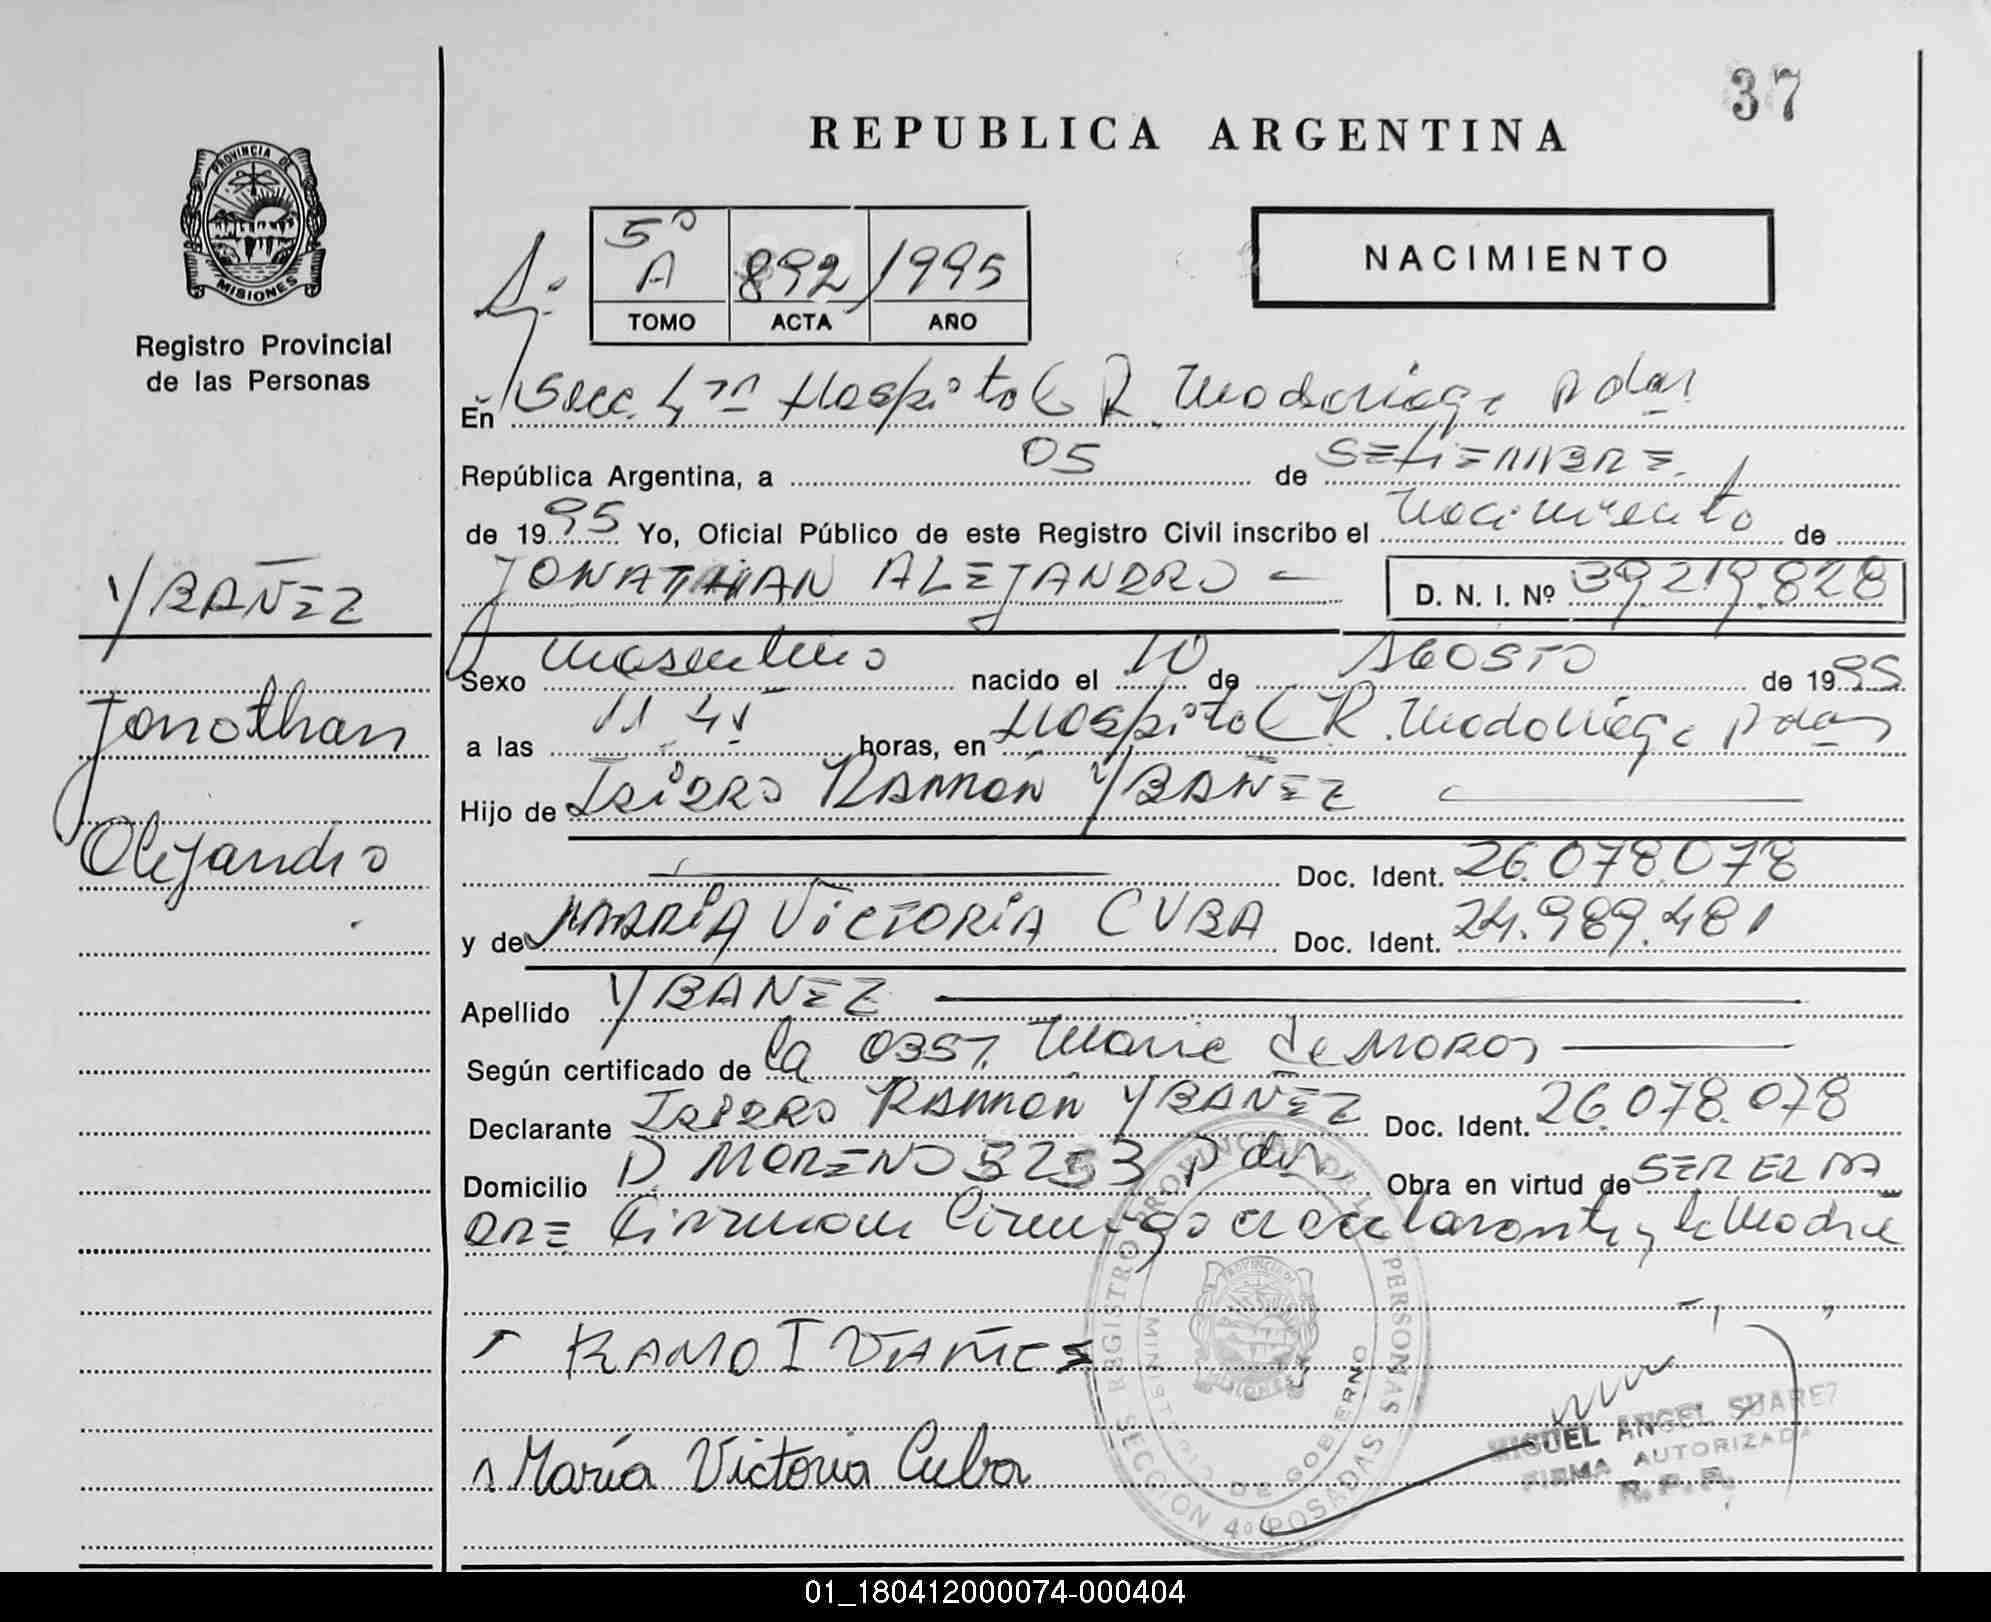 37
REPUBLICA ARGENTINA
PROVINCIA DE
MISIONES
Registro Provincial
de las Personas
5º A 892 1995
TOMO ACTA AÑO
NACIMIENTO
En Secc. 4ta Hospital R. Madariaga Pdas
República Argentina, a 05 de SETIEMBRE
de 1995 Yo, Oficial Público de este Registro Civil inscribo el Nacimiento de
JONATHAN ALEJANDRO D. N. I. Nº 39219.828
YBAÑEZ
Jonathan
Alejandro
Sexo Masculino nacido el 10 de AGOSTO de 1995
a las 11 45 horas, en Hospital R. Madariaga Pdas
Hijo de ISIDRO RAMON YBAÑEZ
Doc. Ident. 26.078.078
y de MARIA VICTORIA CUBA Doc. Ident. 24.989.481
Apellido YBAÑEZ
Según certificado de la OBST. Maria de MOROS
Declarante ISIDRO RAMON YBAÑEZ Doc. Ident. 26.078.078
Domicilio D. MORENO 5253 Pdas Obra en virtud de SER EL PA
DRE Firman Conmigo el declarante y la Madre
RAMO I VAÑES
María Victoria Cuba
REGISTRO PROVINCIAL DE LAS PERSONAS
MINISTERIO DE GOBIERNO
SECCION 4º POSADAS
PROVINCIA DE
MISIONES
MIGUEL ANGEL SUAREZ
FIRMA AUTORIZADA
R. P. P.
01_180412000074-000404